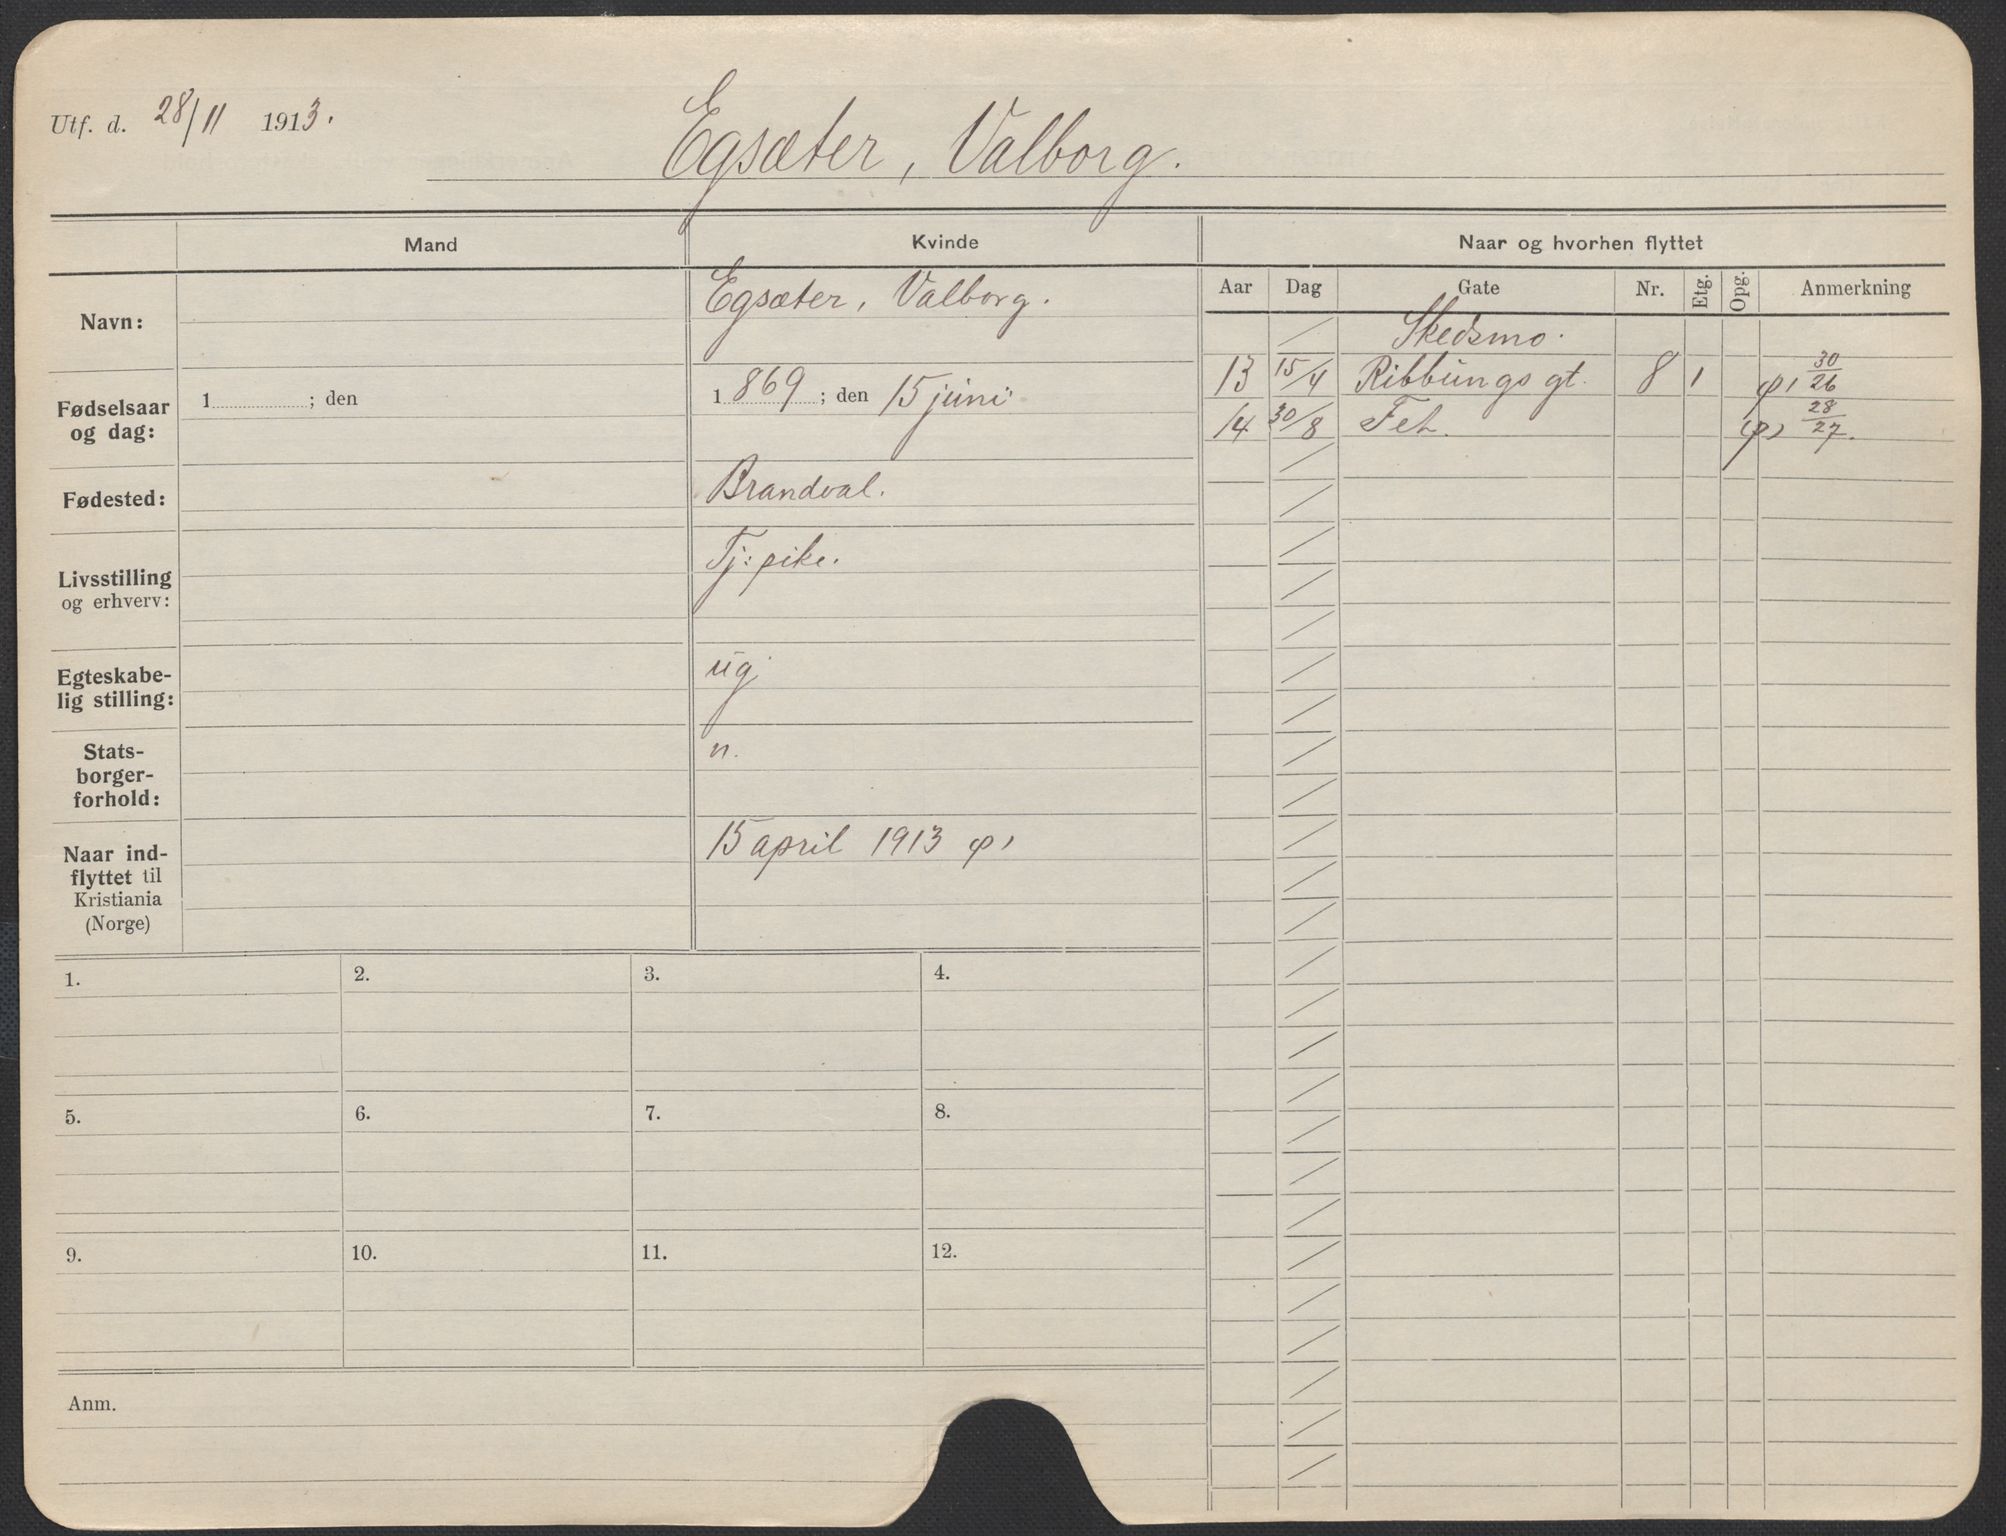 Utf. d. 28/11 1913.
Egsæter, Valborg.
Mand
Kvinde
Naar og hvorhen flyttet
Aar Dag Gate Nr. Etg. Opg. Anmerkning
Navn:
Egsæter, Valborg.
Skedsmo.
13 15/4 Ribbungs gt. 8 1 30/26
14 30/8 Fet. 28/27.
Fødselsaar
og dag:
1 ; den
1869 ; den 15 juni
Fødested:
Brandval.
Livsstilling
og erhverv:
Tj: pike.
Egteskabe-
lig stilling:
ug.
Stats-
borger-
forhold:
n.
Naar ind-
flyttet til
Kristiania
(Norge)
15 april 1913
1.
2.
3.
4.
5.
6.
7.
8.
9.
10.
11.
12.
Anm.